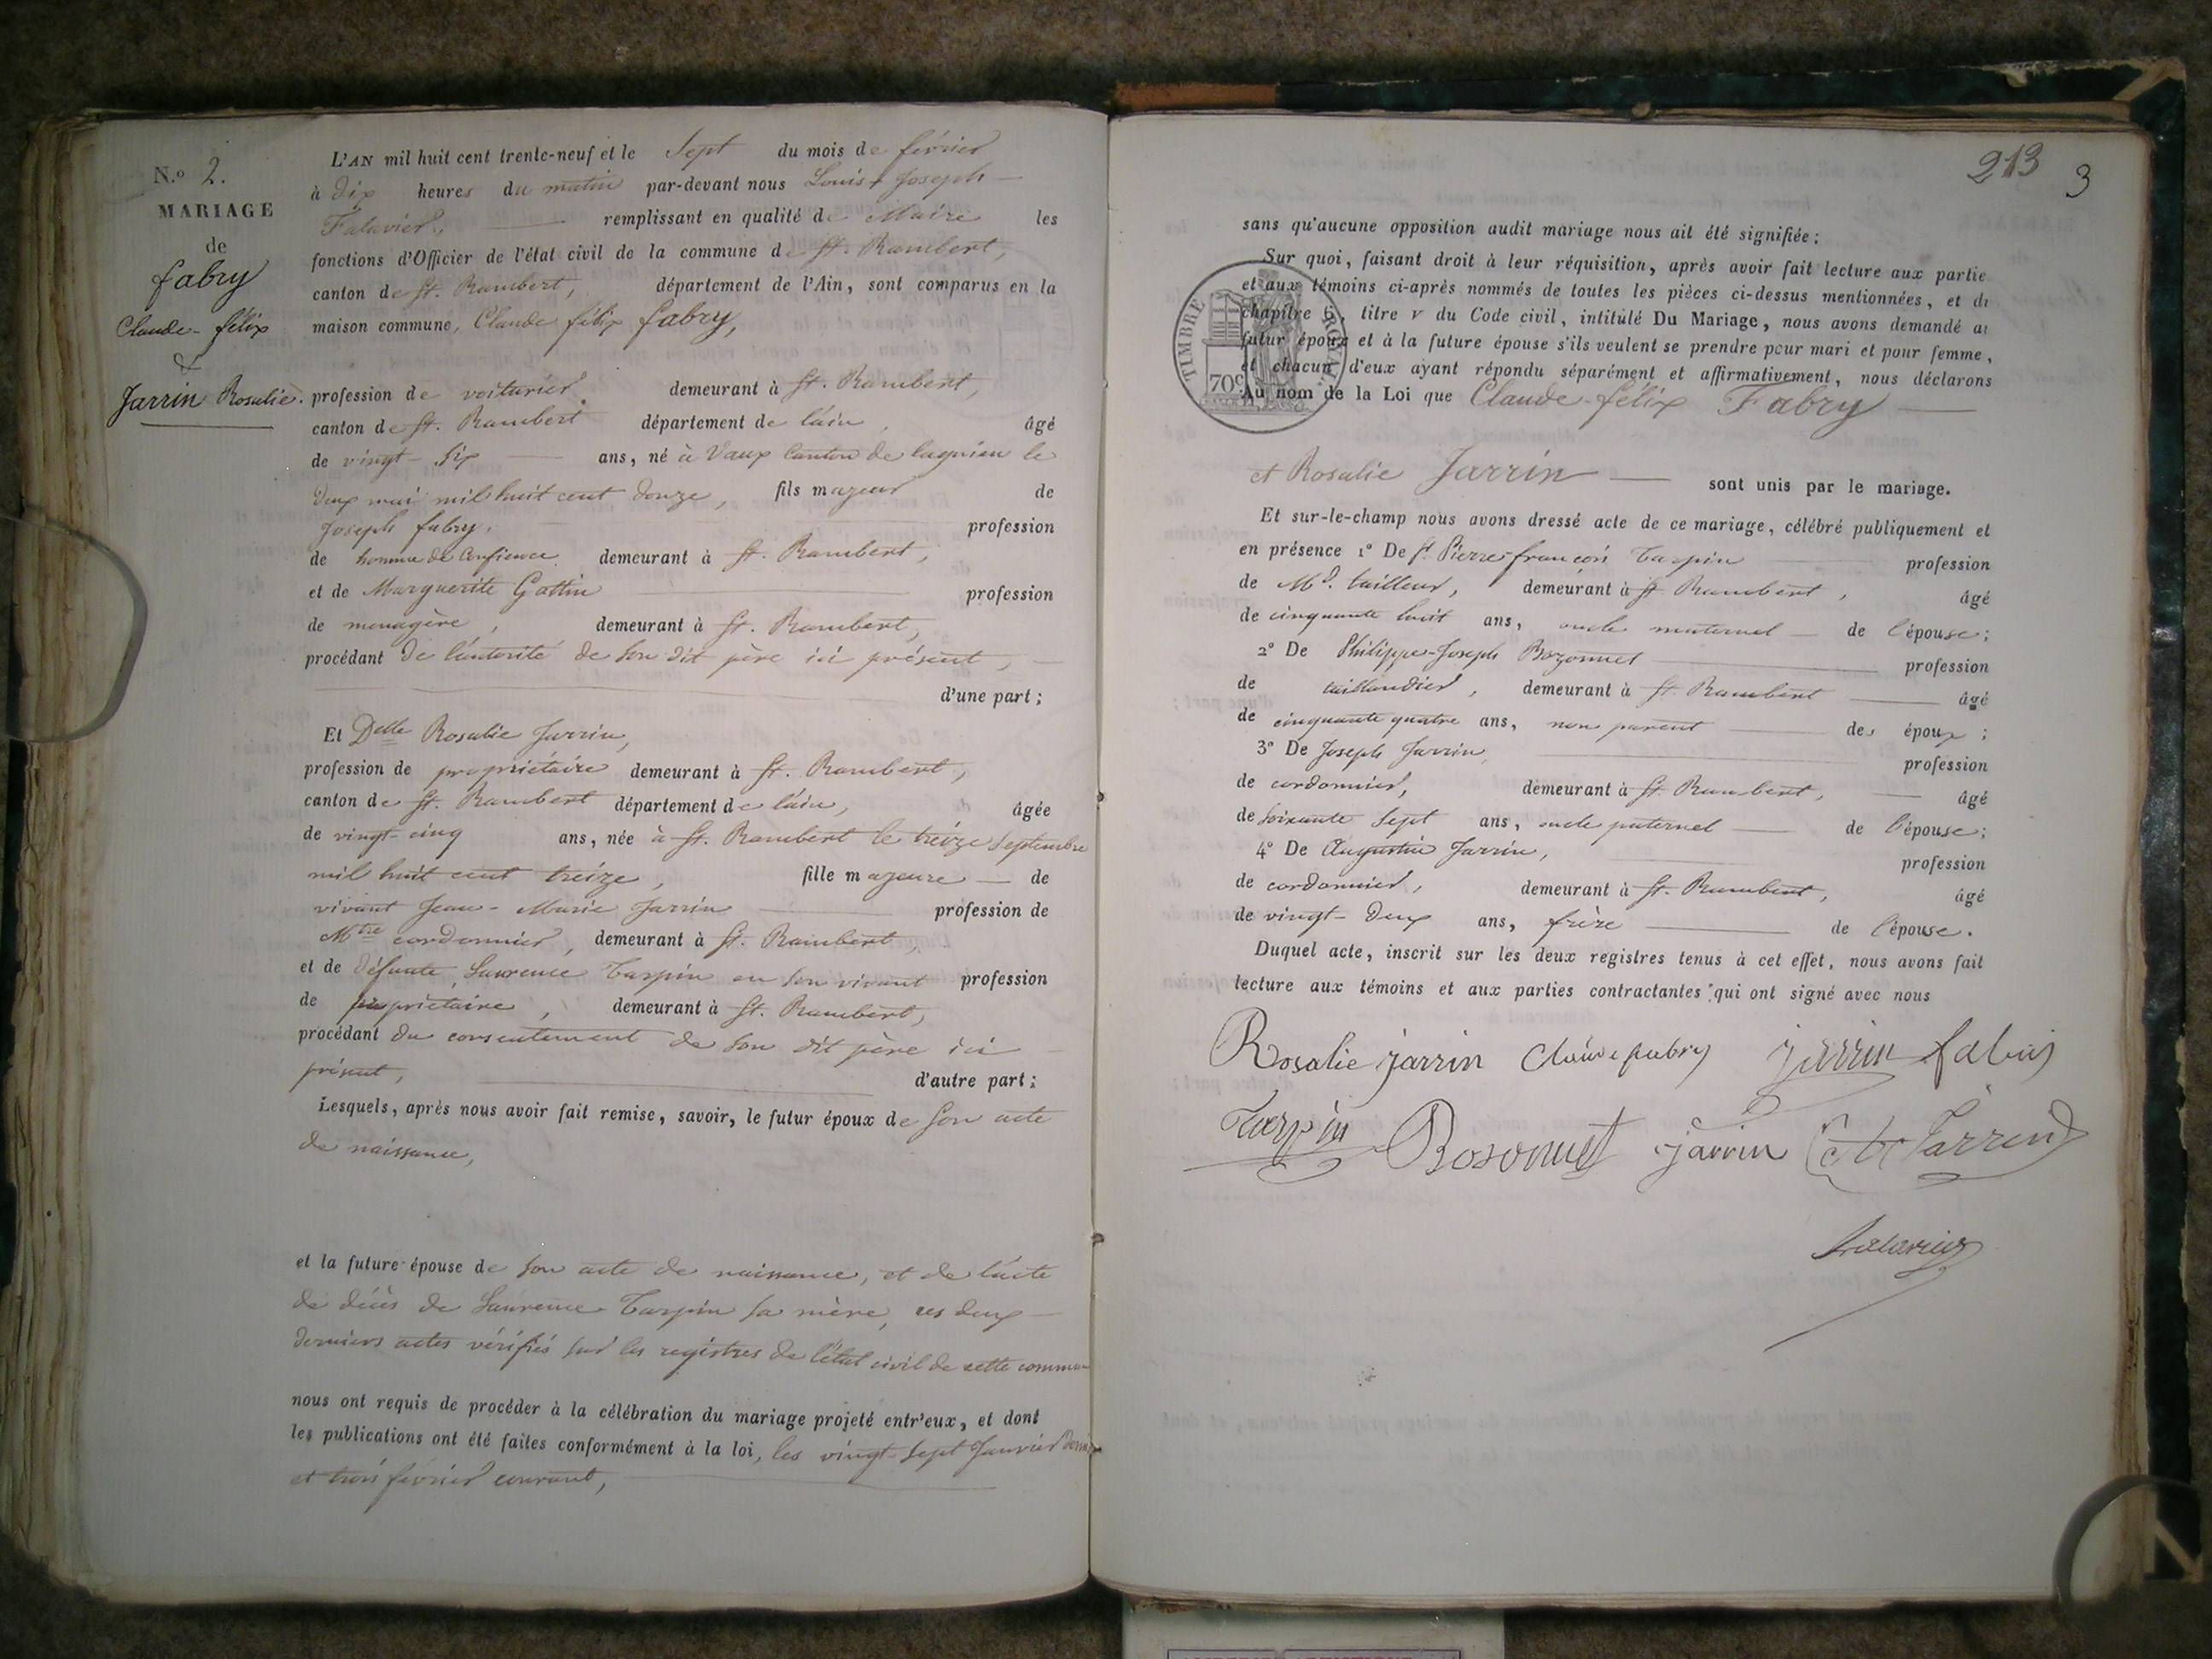 N.o 2.
MARIAGE
de
fabry
Claude-félix
&
Jarrin Rosalie.
L'AN mil huit cent trente-neuf et le Sept du mois de février
à dix heures du matin par-devant nous Louis Joseph
Falavier, remplissant en qualité de Maire les
fonctions d'Officier de l'état civil de la commune de St. Rambert,
canton de St. Rambert, département de l'Ain, sont comparus en la
maison commune, Claude félix fabry,
profession de voiturier demeurant à St. Rambert,
canton de St. Rambert département de l'ain, âgé
de vingt-six ans, né à Vaux Canton de lagnieu le
deux mai mil huit cent douze, fils majeur de
Joseph fabry, profession
de homme de confience demeurant à St. Rambert,
et de Marguerite Gottin profession
de menagère, demeurant à St. Rambert,
procédant de l'autorité de son dit père ici présent,
d'une part;
Et Delle Rosalie Jarrin,
profession de propriétaire demeurant à St. Rambert,
canton de St. Rambert département de l'ain, âgée
de vingt-cinq ans, née à St. Rambert le treize Septembre
mil huit cent treize, fille majeure de
vivant Jean-Marie Jarrin profession de
Mtre cordonnier, demeurant à St. Rambert,
et de défunte Laurence Tarpin en son vivant profession
de propriétaire, demeurant à St. Rambert,
procédant du consentement de son dit père ici
présent, d'autre part;
Lesquels, après nous avoir fait remise, savoir, le futur époux de son acte
de naissance,
et la future épouse de son acte de naissance, et de l'acte
de décès de Laurence Tarpin sa mère, ces deux
derniers actes vérifiés sur les registres de l'état civil de cette
nous ont requis de procéder à la célébration du mariage projeté entr'eux, et dont
les publications ont été faites conformément à la loi, les vingt-sept Janvier
et trois février courant,
213
3
sans qu'aucune opposition audit mariage nous ait été signifiée;
Sur quoi, faisant droit à leur réquisition, après avoir fait lecture aux partie
et aux témoins ci-après nommés de toutes les pièces ci-dessus mentionnées, et du
chapitre 6, titre v du Code civil, intitulé Du Mariage, nous avons demandé au
futur époux et à la future épouse s'ils veulent se prendre pour mari et pour femme,
et chacun d'eux ayant répondu séparément et affirmativement, nous déclarons
Au nom de la Loi que Claude-félix Fabry
TIMBRE ROYAL
70c
et Rosalie Jarrin sont unis par le mariage.
Et sur-le-champ nous avons dressé acte de ce mariage, célébré publiquement et
en présence 1° De Sr. Pierre françois Tarpin profession
de Md. tailleur, demeurant à St Rambert, âgé
de cinquante huit ans, oncle maternel de l'épouse;
2° De Philippe-Joseph Bozonnet profession
de taillandier, demeurant à St Rambert âgé
de cinquante quatre ans, non parent des époux;
3° De Joseph Jarrin, profession
de cordonnier, demeurant à St. Rambert, âgé
de soixante sept ans, oncle paternel de l'épouse;
4° De Augustin Jarrin, profession
de cordonnier, demeurant à St. Rambert, âgé
de vingt-deux ans, frère de l'épouse.
Duquel acte, inscrit sur les deux registres tenus à cet effet, nous avons fait
lecture aux témoins et aux parties contractantes qui ont signé avec nous
Rosalie jarrin Claude fabry jarrin fabry
Tarpin Bosonnet jarrin Jarrin
Falavier